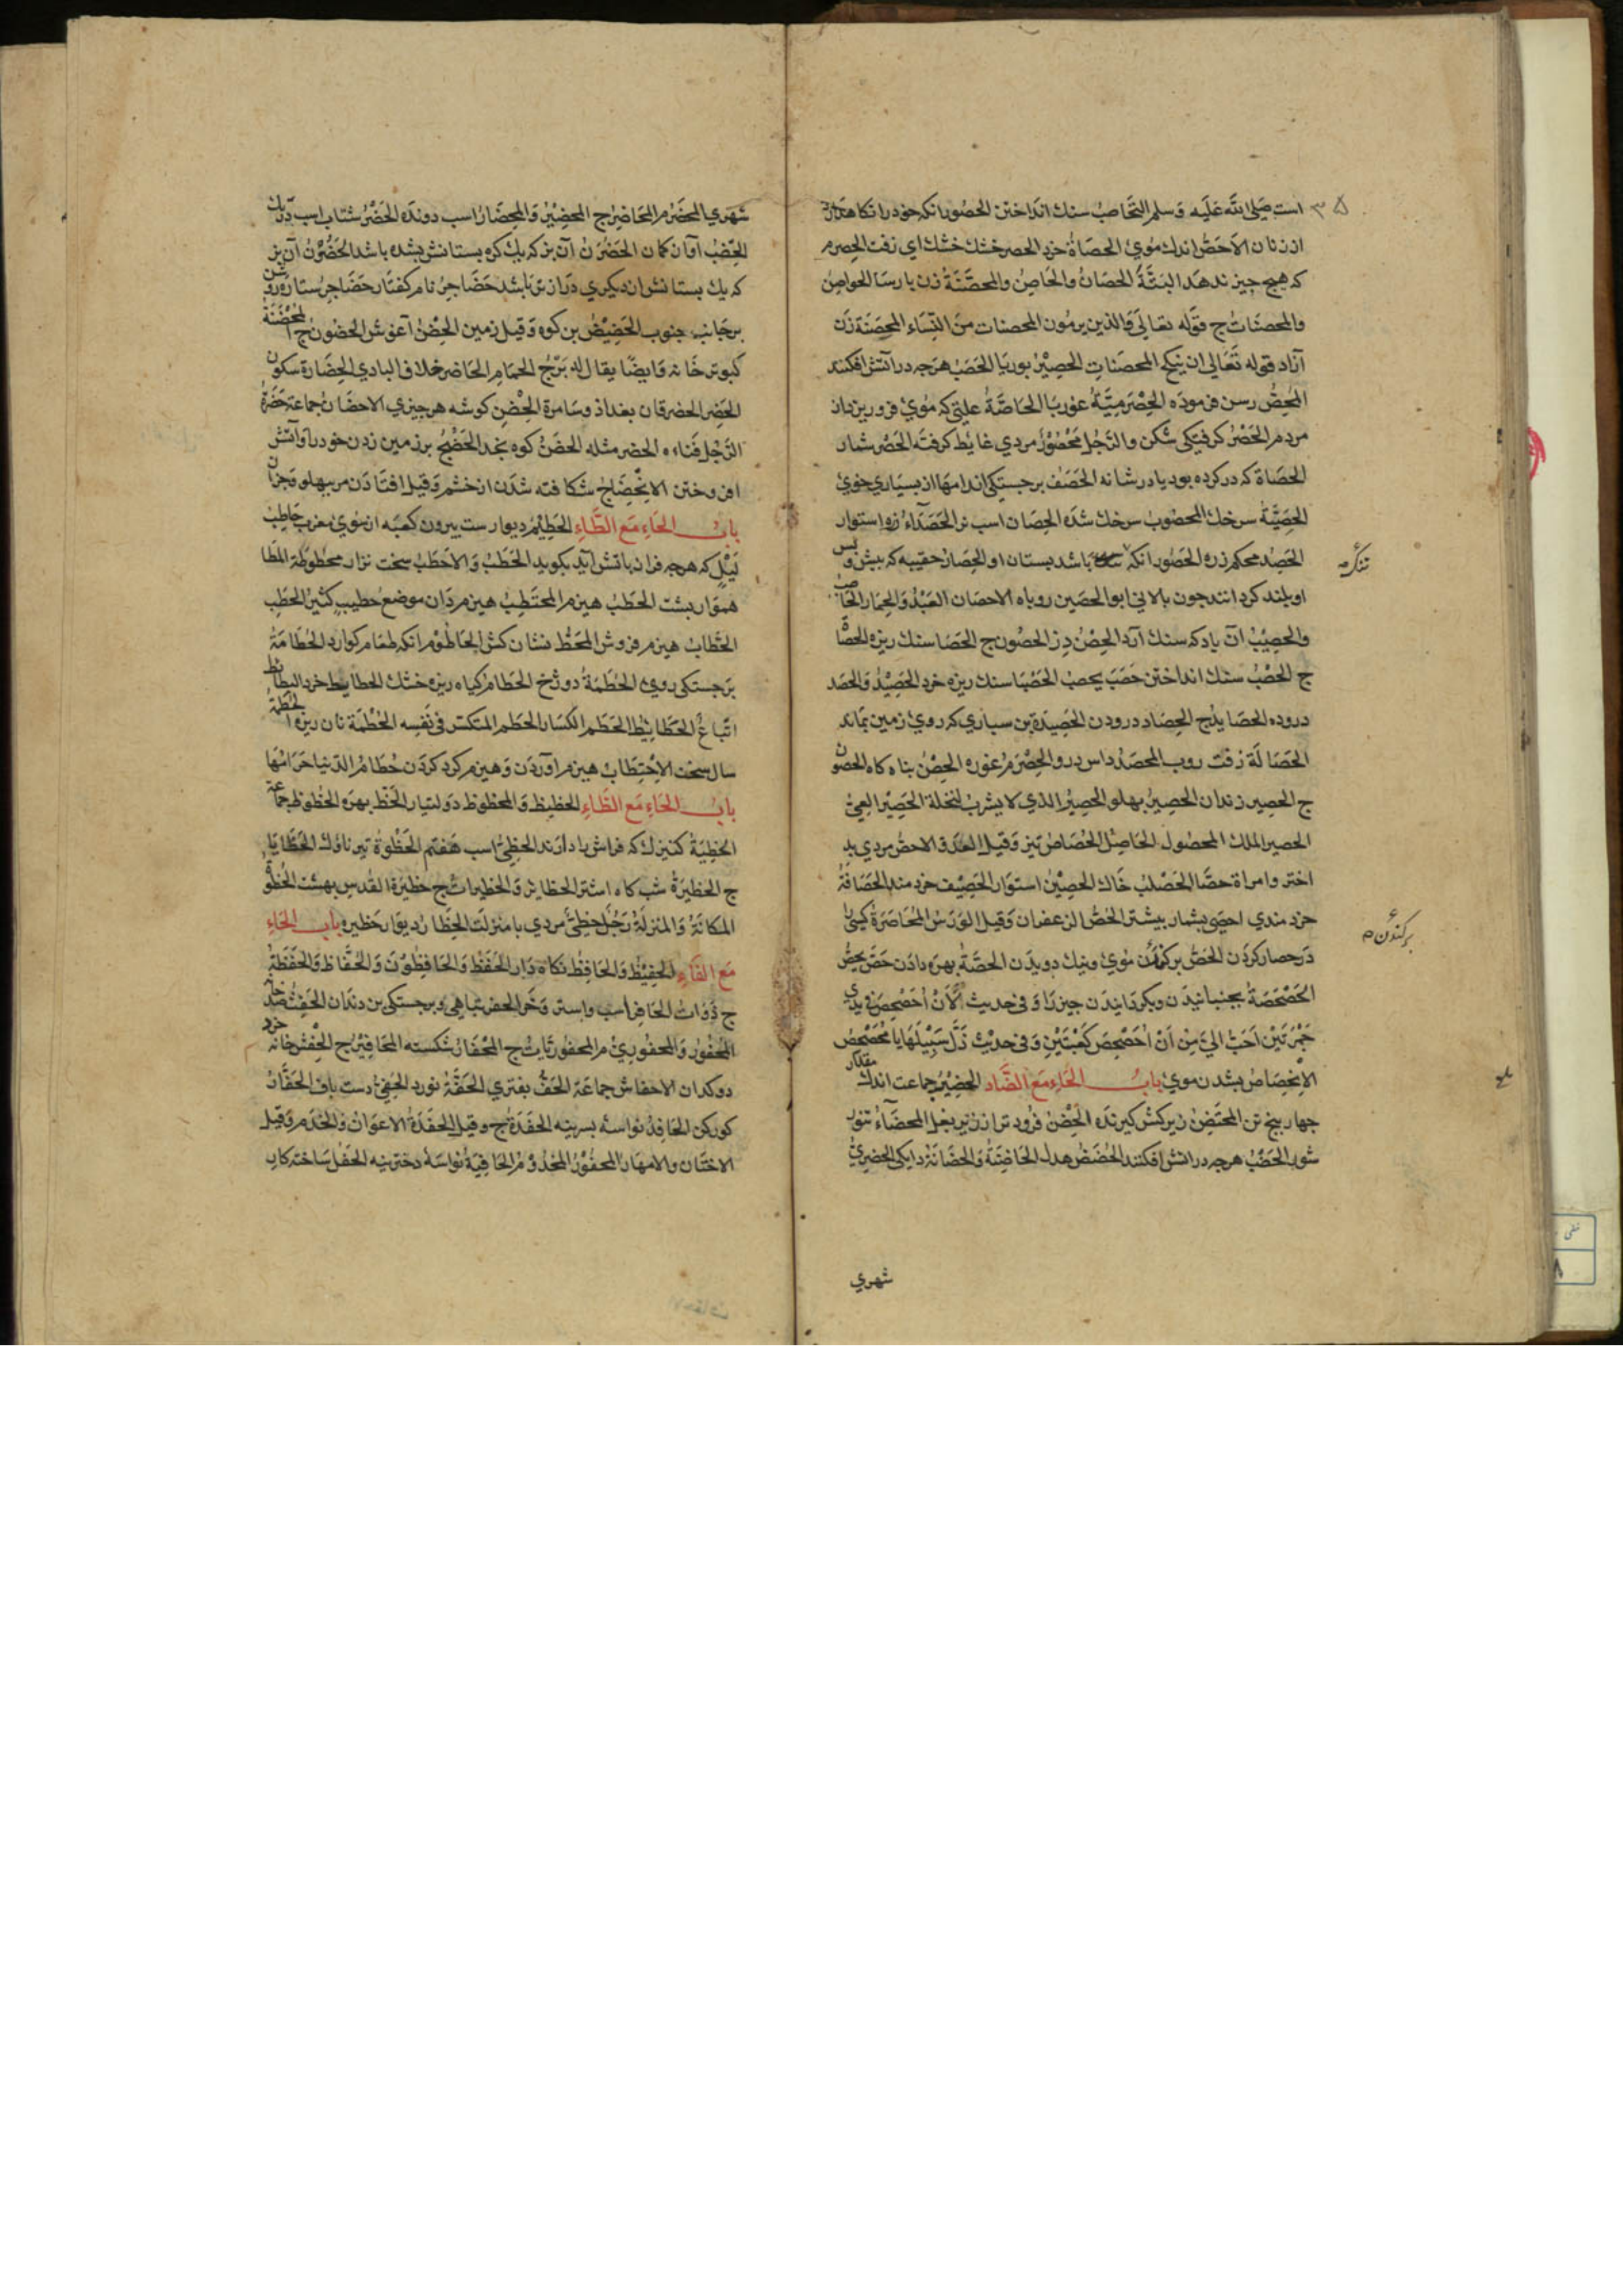 است صَلى الله عَليَه وَسلم التَّحَاصبُ سنك انَداختن الحصُور انكه خود را نكاه دارد
از زنان الاَحَصُّ اندك مُوئ الحصَاةُ خرد الحصر خشك خشك اي زفت الحصرم
كه هيچ چيز ندهَد البَتَّةُ الحصَانُ والحَاصِنُ والمحصَّنَةُ زن پارسَا الحواصِنُ
والمحصنَاتُ ج قوَله تعَالىَ وَالذين يرمُون المحصنات مِنَ النِّسَاء المحصِنَة زَن
آزاد قوله تَعَالى ان ينكح المحصَناتِ الحصِيْرُ بوريا الحَصَبُ هرَچه در آتش افكنند
رسن فرموده الحِصْرَمِيَّةُ غوربَا الحَاصَّةُ علتي كه مُوئ فرو ريزد از
مردم الحَصْرُ كرفتكى شكن والرَّجُل مَحْصُوْرٌ مردي غايط كرفتَه الحَصْر شمار
الحصَاة كه در كرده بود يا در شانه الحَصَفُ برجستكى اندامهَا از بسيَاري خوئ
الحَصِبَةُ سرخك المحصُوبُ سرخك شدَه الحِصَان اسب نر الحَصَدَاءُ زره استوار
الحَصِدُ محكم زره الحَصُور انكه باشد بستان او الحِصَارُ حقيبه كه بيش و پس
او بلند كردانند چون پالاني ابو الحصَين روباه الاحصَان العَبْدُ وَالحِمار الحَاصِبُ
والحصِبُ آن باد كه سنك آرد الحِصْنُ دِز الحصُون ج الحصَا سنك ريزه الحصَّا
ج الحَصْبُ سنك انداختن حَصَبَ يحصب الحَصْبَا سنك ريزه خرد الحَصِيْدُ وَالحصَد
دروده الحصَايدُ ج الحِصَاد درودن الحَصِيدَة بن سپاري كه روئ زمين بمَاند
الحَصَالَة زفت روب المحصَدُ داس درو الحِصْرَمُ غوره الحِصْنُ پناه كاه الحصُون
ج الحصِير زندان الحصِيرُ پهلو الحصِيْرُ الذي لا يشربُ لبخله الحَصِيْر العِىّ
الحصير الملك المحصُول الحَاصِلُ الحُصَاصُ تيز وَقيل العَدْو الاحصُّ مردي بد
اختر وامراة حصَّا الحَصْلب خَاك الحصِيْنُ استوَار الحَصِيْف خرد مند الحَصَافَةُ
خرد مندي احصَى بشمار بيشتر الحُصُّ الزعفران وَقيل الوَرَسُ المُحَاصَرَةُ كسى را
دَر حصار كردَن الحَصُّ بركندن مُوئ ونيك دويدَن الحصَّةُ بهرَه دادن حَصَّ يحصُّ
الحَصْحَصَةُ بجنبانيدَن وبكردَانيدَن چيز رَا وَفي حديث لَأَنْ اُحَصْحِصَ في يدي
جَمْرَتَيْن اَحَبُّ اليَّ مِنْ اَنْ اُحَصْحِصَ كَعْبَتَيْنِ
الاِنحِصَاصُ بشدن موئ بابُ الحَاءِ مَعَ الضَّاد الحضِيْرُ جماعت اندك مقدار
چهار پنج تن المحتَضِنُ زير كش كيرندَه الحِضْنُ فرُود تر از زير بغل المحضَاءُ تنور
شور الحَضْبُ هرچه در اتش افكنند الحُضَضُ هدل الحَاضِنَةُ وَالحَضَانَةُ دايكى الحَضِريّ
۳۵
بركندن
شهري
شهَري المحضَرُ م المحَاضِرُ ج المحضِيْرُ وَالمِحضَارُ اسب دوندَه الحُضْرُ شتاب اسب
الحِضْبُ آواز كمان الحَضُوْنُ آن بز كه يك كره بستانش بشده باشد الحَضُوْنُ آن بز
كه يك بستانش از ديكري دَراز تر بَاشد حَضَاجِرُ نام كفتَار حَضَاجِرُ ستارَه
برجَانب جنوب الحَضِيْضُ بن كوه وَقيل زمين الحِضْنُ آغوش الحضُون ج المحْضَنَةُ
كبوتر خانه وَايضًا يقال له بَرّجُ الحمَام الحَاضر خلاف البَادي الحِضَارة سكون
الحَضِر الحضر قان بغداد وسَامرة الحِضْنُ كوشه هرچيزي الاحضَانُ جماعة حَضْرَةُ
الرَّجُل فَناءه الحضر مثله الحضَنُ كوه بنجد الحَضْجُ بر زمين زدن خود را وآتش
افروختن الانحِضَاجُ شكافته شدَن از خشم وَقيل افتَادَن مر بپهلو
بابُ الحَاءِ مَع الطَّاءِ الحَطِيْمُ ديوارست بيرون كعبَه از سُوئ مغرب حَاطِبُ
لَيْلٍ كه هرچه فراز يا تش آيد بكويد الحَطَبُ وَالاحَطَبُ سخت نزار محطوطَة المطَا
همَوار پشت الحَطَبُ هيزم المحتَطِبُ هيزم مردَان موضع حطيبٍ كثيْر الحطَبِ
الحَطّابُ هيزم فروش المحَطُّ نشان كش الحَاطُومُ انكه طعَام كوارد الحُطَامَةُ
برَجستكى روئ الحُطَمَةُ دوزخ الحطَامُ كياه ريزه خشك الحطايط خرد البطايط
اتّباعُ الحَطَايِطُ الحَطَم الكسَار الحَطم المتكسّر في نَفسِه الحُطْمَة نان ريزه الحَطَمَةُ
سال سخت الاِحْتِطَابُ هيزم آوردَن وَهيزم كرد كردَن حُطَامُ الدّنيا حَرَامُهَا
بابُ الحَاءِ مَع الظَّاءِ الحظيظ وَالمحظوظ دَولتيَار الحَظّ بهرَه الحُظُوظ جماعة
الحَظِيَةُ كنيزك كه فراش بادارَند الحظِىُّ اسب هَفتم الحَظْوَةُ تير ناوك الحَظَايَا
ج الحظيَرةُ شب كاه اشتر الحظائر وَالحظيرات ج حظيْرَة القدس بهشت الحُظْوَةُ
المكانَةُ وَالمنزلَةُ رَجُلٌ حظِىٌّ مردي با منزلَت الحِظَارُ ديوَار حَظيره بَابُ الحَاءِ
مَعَ الفَاءِ الحفِيْظُ وَالحَافِظُ نكاه دَار الحُفَّظُ وَالحَافِظُوْنَ وَالحُفَّاظ وَالحَفَظَةُ
ج ذَوَاتُ الحَافِر اسب واستر وَخَر الحفر تباهى وَبرجستكى بن دندان الحَفِثُ
المُحْفُورُ وَالمحفُوريُ م المحفُورِيَّاتُ ج المِحْفَارُ شكسته المحَافِيْرُ ج الحِفْشُ خَانَه خرد
دوكدان الاحفَاش جماعَة الحَفُّ بفتري الحَفَّةُ نورد الحَفِيُّ دست باف الحَفَّارُ
كور كن الحَافِدُ نواسَهُ پسرينه الحَفَدَةُ ج وقيل الحَفَدَةُ الاعوَانُ وَالخَدَم وَقيل
الاختَان والاصهَارُ المحفُوْدُ المخدُوْمُ الحَافِيَةُ نواسَهُ دخترينه الحَفْل سَاخته كار